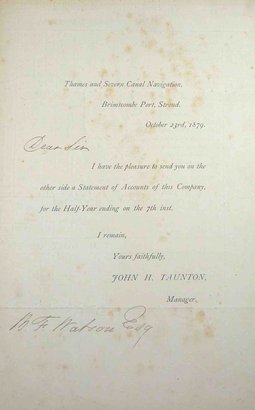 Thames and Severn Canal Navigation,
Brimscombe Port, Stroud.
October 23rd, 1879.
Dear Sir
I have the pleasure to send you on the
other side a Statement of Accounts of this Company,
for the Half-Year ending on the 7th inst.
I remain,
Yours faithfully,
JOHN H. TAUNTON,
Manager.
W. F. Watson Esq